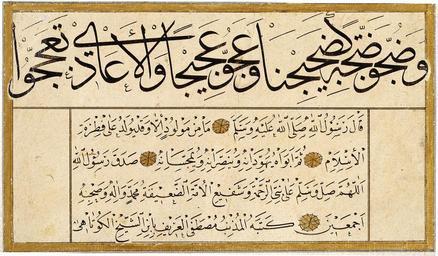 وعجوا عجيجا والأعادي
قال رسول الله صلى الله عليه وسلم ما من مولود إلا وقد يولد على فطرة
الإسلام ثم أبواه يهودانه وينصرانه ويمجسانه صدق رسول الله
اللهم صل وسلم على نبي الرحمة وشفيع الأمة الضعيفة محمد وآله وصحبه
أجمعين كتبه المذنب مصطفى الشيخ